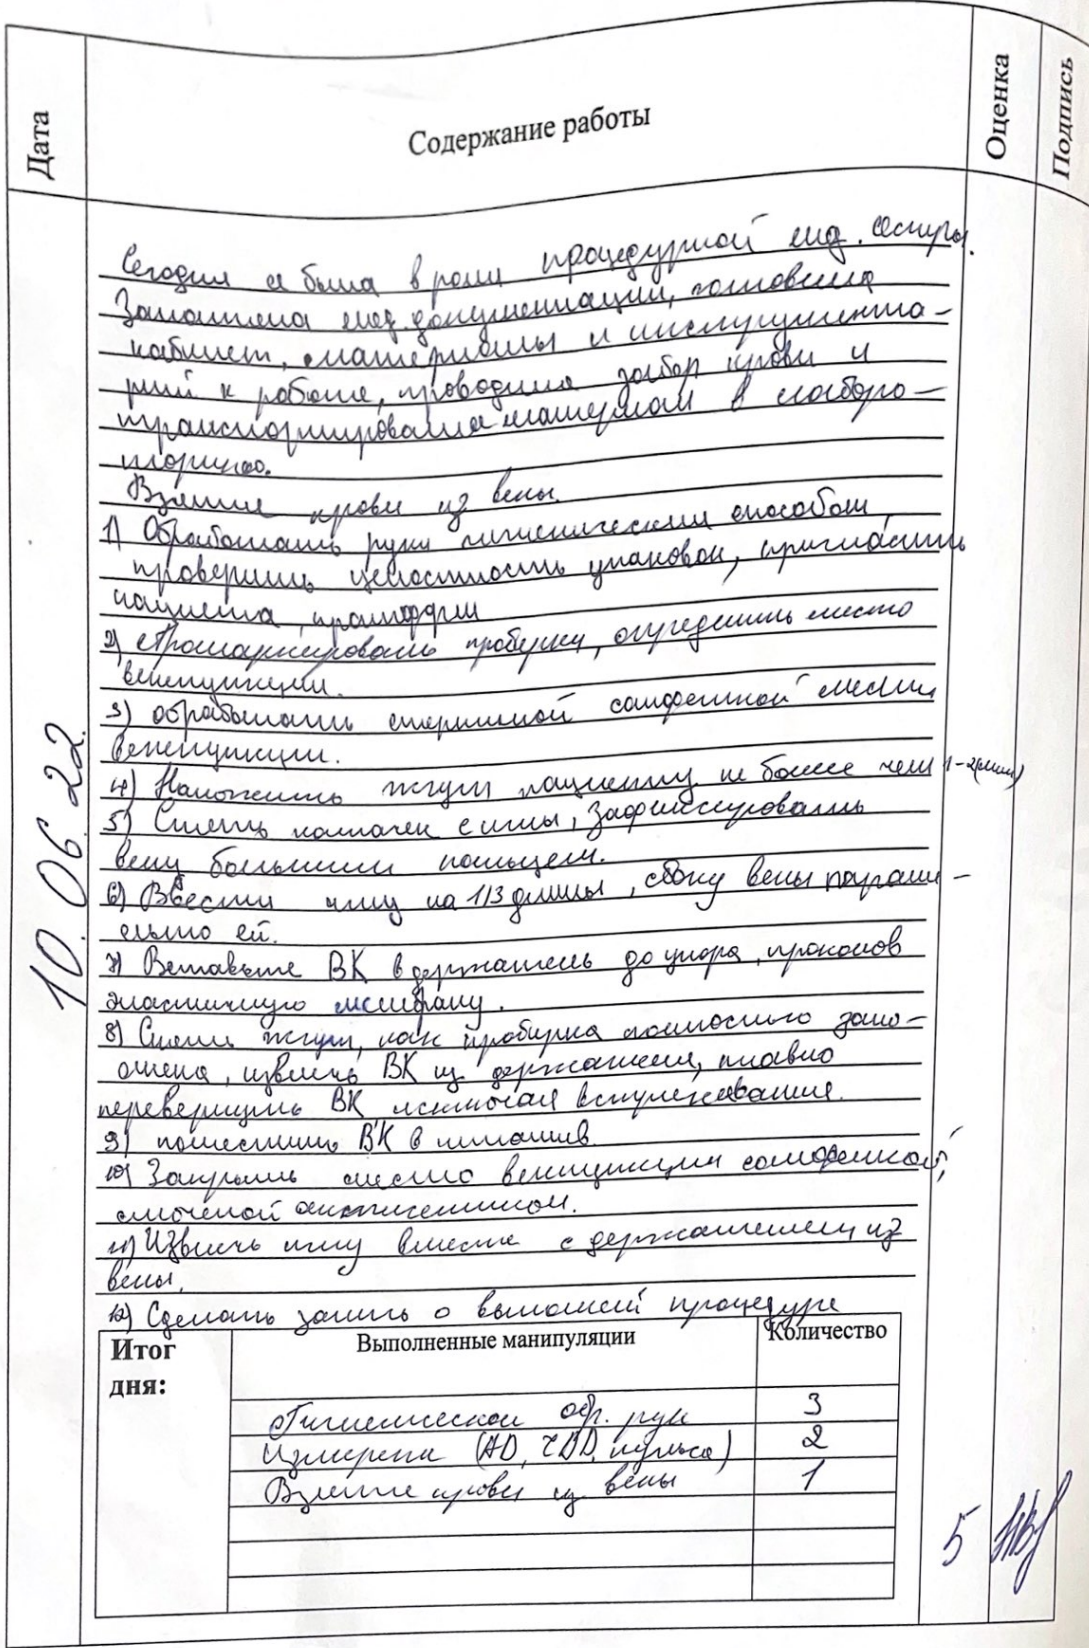 Дата
Содержание работы
Оценка
Подпись
10.06.22.
Сегодня я была в роли процедурной мед. сестры.
Заполняла мед. документации, готовила
кабинет, материалы и инструмента-
рий к работе, проводила забор крови и
транспортировала материал в лаборо-
торию.
Взятие крови из вены.
1) Обработать руки гигиеническим способом,
проверить целостность упаковок, пригласить
пациента,
2) Промаркировать пробирку, определить место
венепункции.
3) обработать стерильной салфеткой место
венепункции.
4) Наложить жгут пациенту не более чем 1-2(мин)
5) Снять колпачек с иглы, зафиксировать
вену большим пальцем.
6) Ввести иглу на 1/3 длины, сбоку вены паралл-
ельно ей.
7) Вставьте ВК в держатель до упора, проколов
эластичную мембрану.
8) Снять жгут, как пробирка полностью запо-
лнена, извлечь ВК из держателя, плавно
перевернуть ВК исключая вспенивания.
9) поместить ВК в штатив
10) Закрыть место венепункции салфеткой,
смоченой антисептиком.
11) Извлечь иглу вместе с держателем из
вены.
12) Сделать запись о выполненой процедуре
Итог
дня:
Выполненные манипуляции
Количество
Гигиеническая обр. рук 3
Измерение (АД, ЧДД, пульса) 2
Взятие крови из вены 1
5